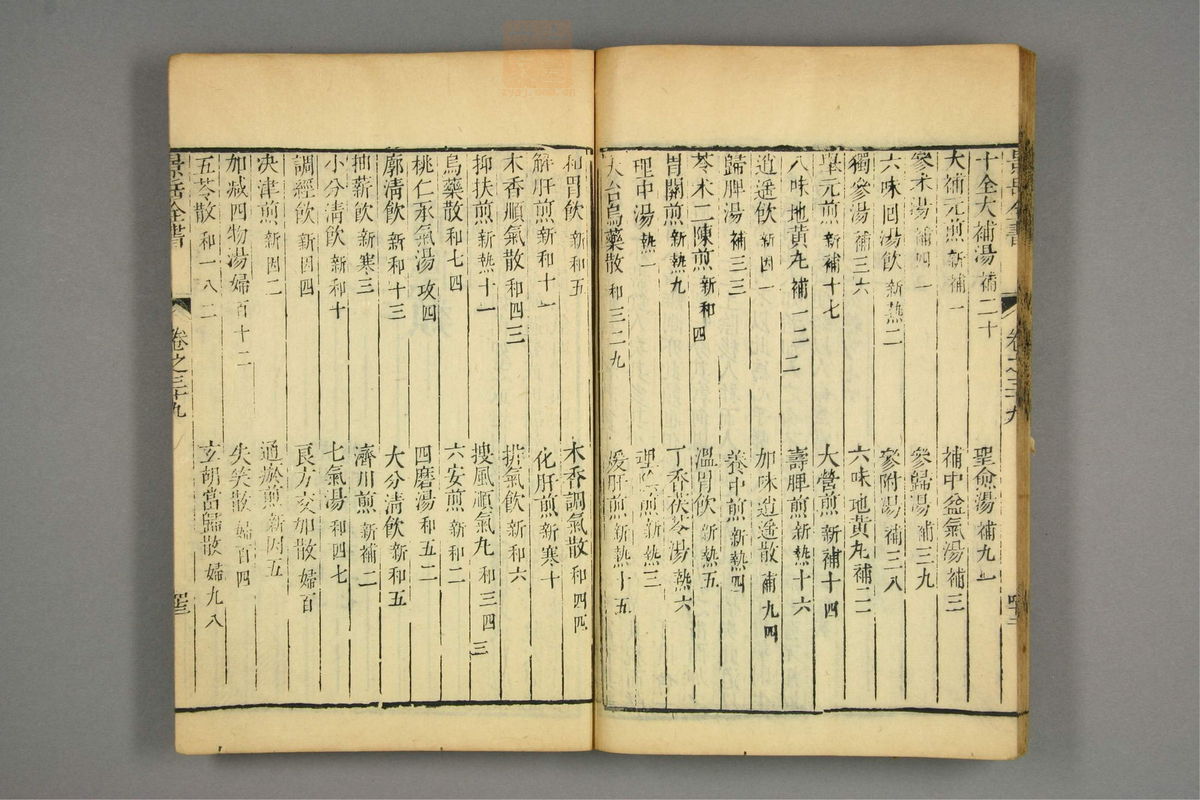 景岳全書 卷之三十九
十全大補湯 補二十 聖愈湯 補九十
大補元煎 新補一 補中益氣湯 補三
參朮湯 補四一 參歸湯 補三九
六味回陽飲 新熱二 參附湯 補三八
獨參湯 補三六 六味地黃丸 補二二
舉元煎 新補十七 大營煎 新補十四
八味地黃丸 補一二二 壽脾煎 新熱十六
逍遙飲 新因一 加味逍遙散 補九四
歸脾湯 補三三 養中煎 新熱四
苓朮二陳煎 新和四 溫胃飲 新熱五
胃關煎 新熱九 丁香茯苓湯 熱六
理中湯 熱一 理陰煎 新熱三
天台烏藥散 和三二九 煖肝煎 新熱十五
和胃飲 新和五 木香調氣散 和四四
解肝煎 新和十一 化肝煎 新寒十
木香順氣散 和四三 排氣飲 新和六
抑扶煎 新熱十一 搜風順氣丸 和三四三
烏藥散 和七四 六安煎 新和二
桃仁承氣湯 攻四 四磨湯 和五二
廓清飲 新和十三 大分清飲 新和五
抽薪飲 新寒三 濟川煎 新補二
小分清飲 新和十 七氣湯 和四七
調經飲 新因四 良方交加散 婦百
決津煎 新因二 通瘀煎 新因五
加減四物湯 婦百十二 失笑散 婦百四
五苓散 和一八二 玄胡當歸散 婦九八
景岳全書 卷之三十九